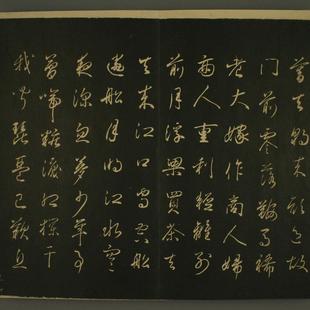 暮去朝来顔色故
門前零落鞍馬稀
老大嫁作商人婦
商人重利輕離别
前月浮梁買茶去
去来江口守空船
遶船月明江水寒
夜深忽夢少年事
夢啼粧淚紅闌干
我聞琵琶已歎息